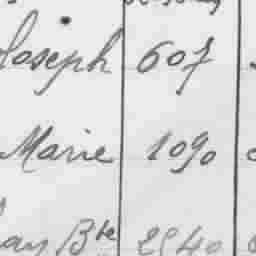 Joseph 607
Marie 1090
Bte 2940